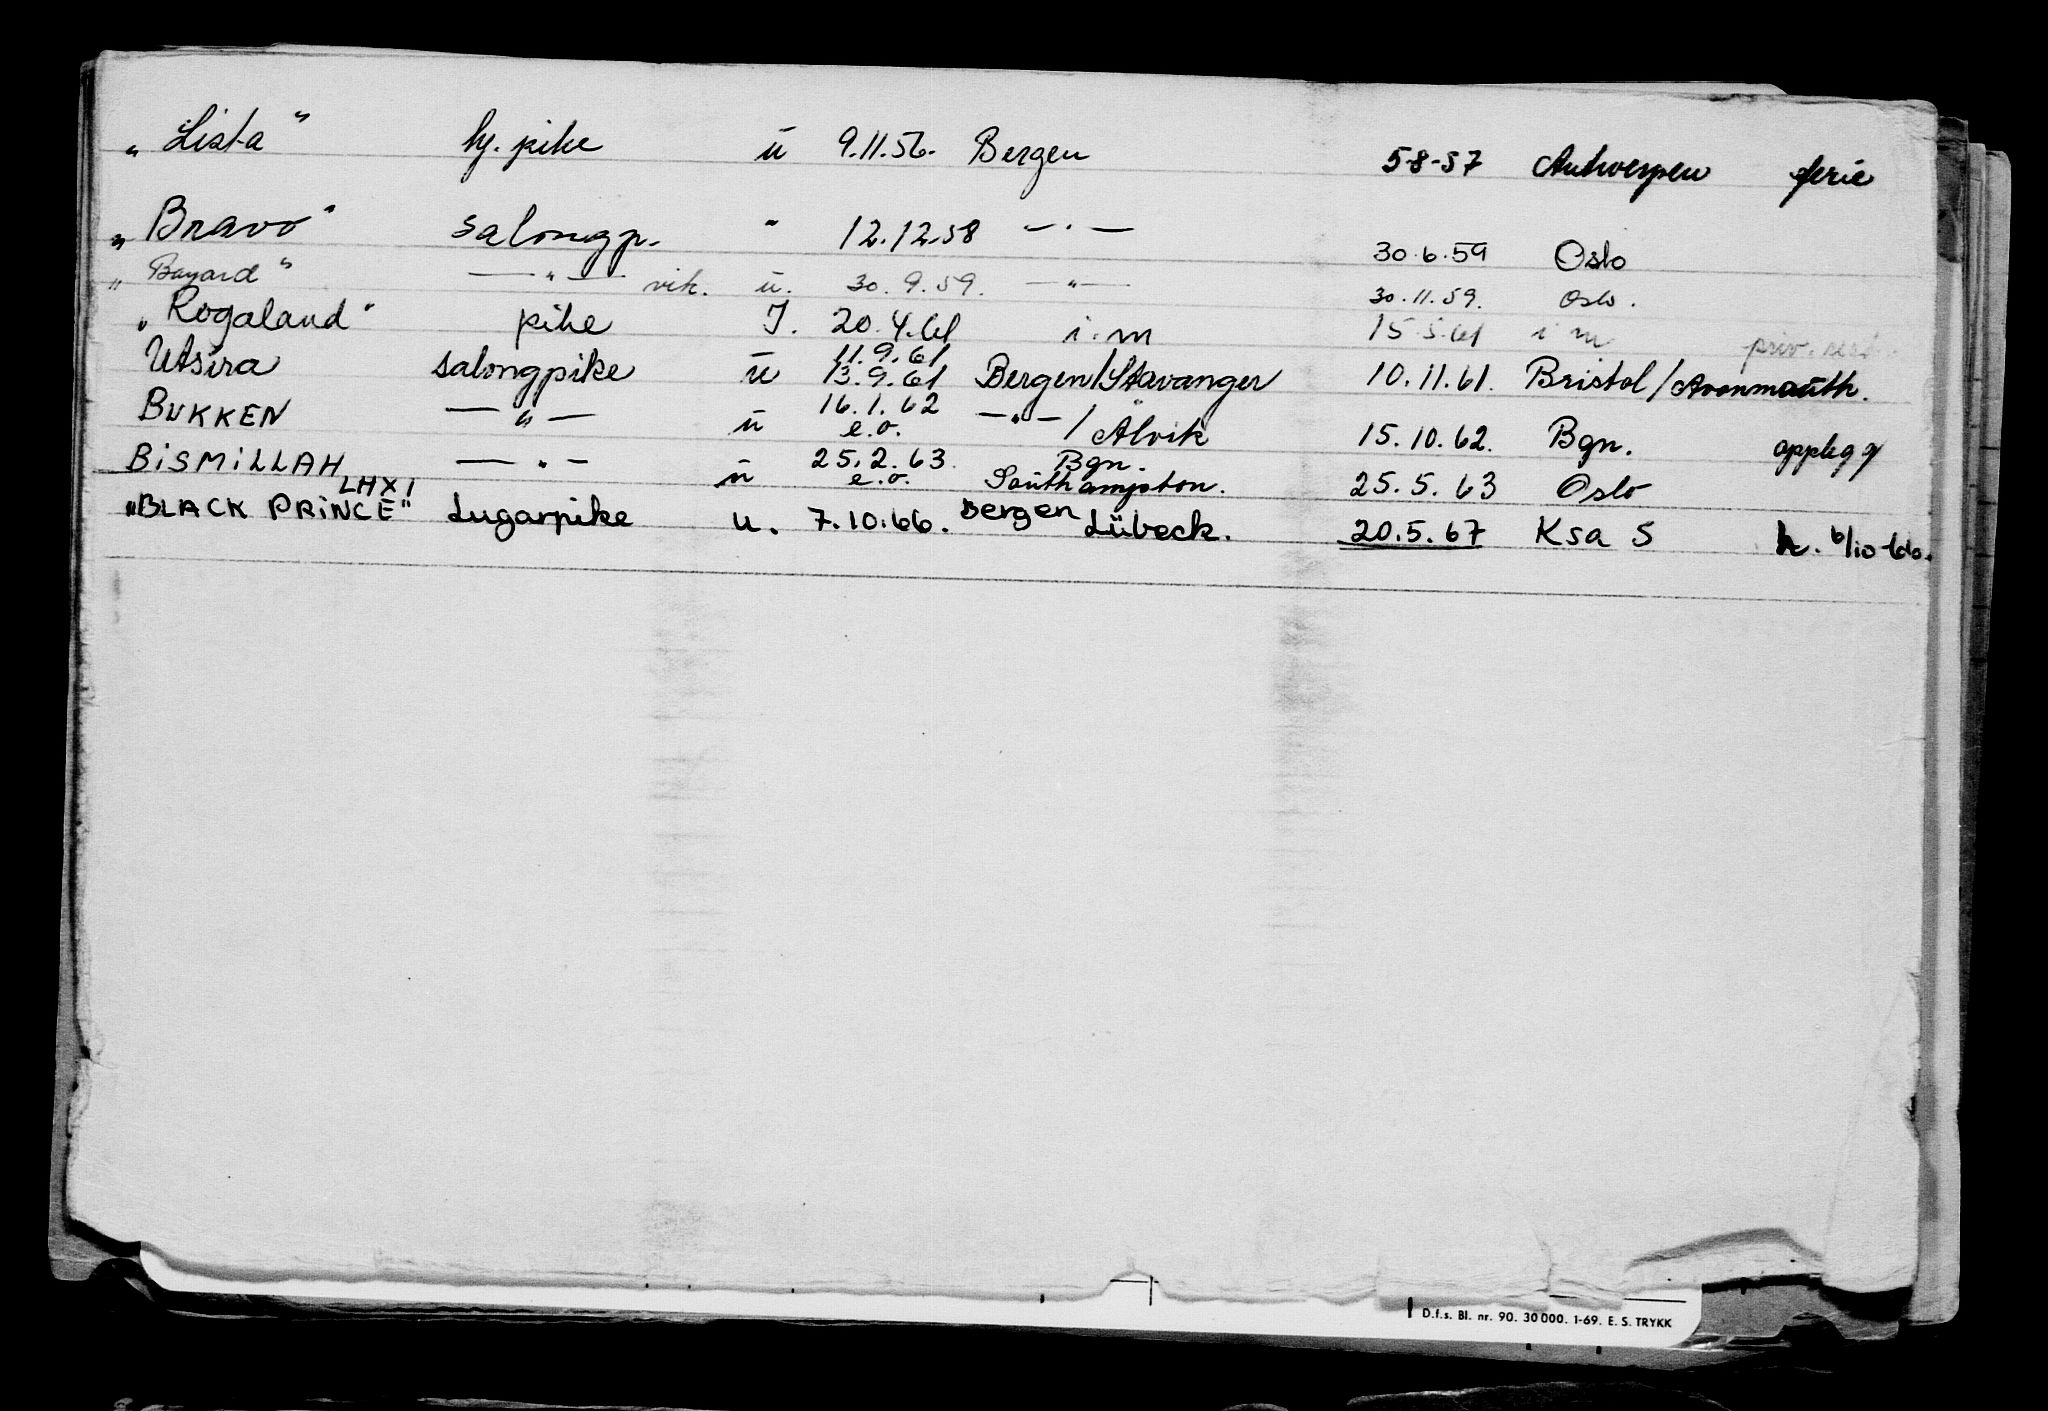 „Lista" hj. pike ū 9.11.56. Bergen 5-8-57 Antwerpen ferie
„Bravo" salongp. " 12.12.58 — . — 30.6.59 Oslo
„Bayard" — " — vik. u. 30.9.59. — " — 30.11.59. Oslo.
„Rogaland" pike I. 20.4.61 i.m 15.5.61 i m priv.
11.9.61
Utsira salongpike ū 13.9.61 Bergen/Stavanger 10.11.61. Bristol/Avonmouth.
16.1.62
BUKKEN — " — ū e.o. — " — / Ålvik 15.10.62. Bgn. opplegg
25.2.63. Bgn.
BiSMiLLAH — " — ū e.o. Southampton. 25.5.63 Oslo
LHXI
„BLACK PRiNCE" Lugarpike u. 7.10.66. Bergen Lübeck. 20.5.67 Ksa S h. 6/10-66.
D.f.s. Bl. nr. 90. 30 000. 1-69. E. S. TRYKK